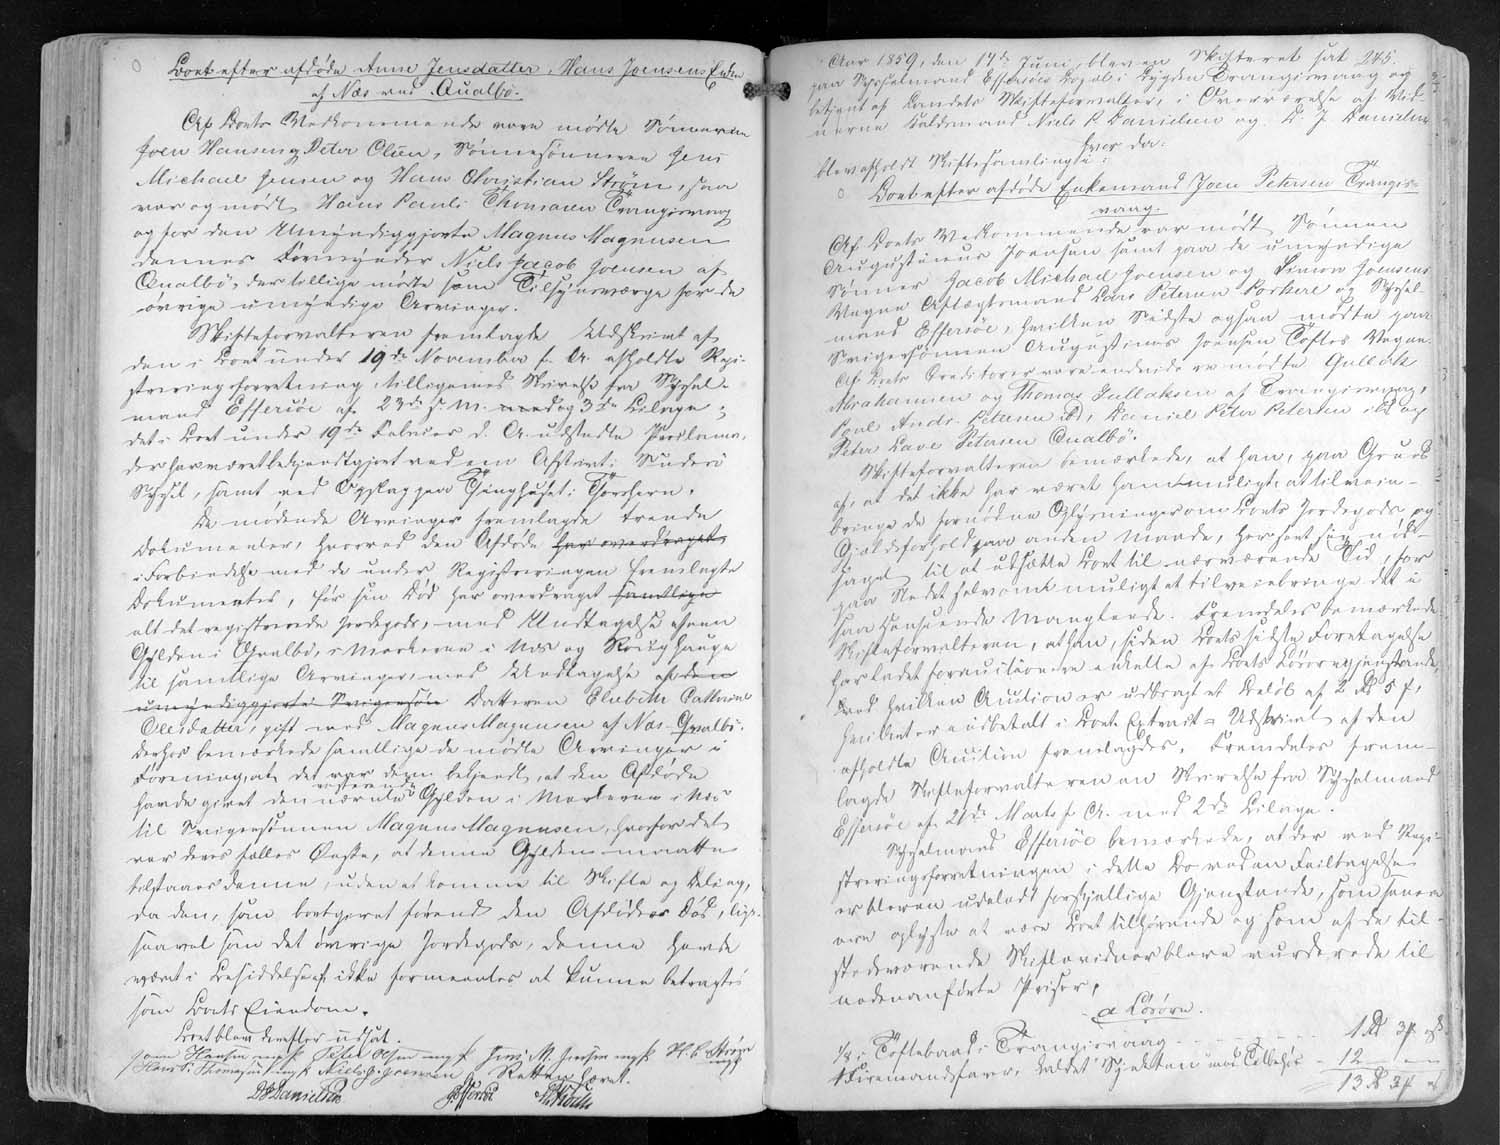 Boet efter afdøde Anne Jensdatter, Hans Joensens Enke
af Næs ved Qualbø.
Af Boets Vedkommende vare mødte Sønnerne
Joen Hansen og Peter Olsen, Sønnesønnerne Jens
Michael Jensen og Hans Christian Strøm, saa
var og mødt Hans Pauli Thomasen Trangisvaag
og for den Umyndiggjorte Magnus Magnusen
dennes Formynder Niels Jacob Joensen af
Qualbø, der tillige mødte som Tilsynsværge for de
øvrige umyndige Arvinger.
Skifteforvalteren fremlagde Udskrivt af
den i Boet under 19de November f. A. afholdte Regi-
streringsforretning, tilligemed Skrivelse fra Syssel-
mand Effersøe af 23de s. M. med og 3de Bilage;
det i Boet under 19de Februar d. A. udstedte Proclama,
der har været bekjendtgjort ved en Afskrivt i Suderø
Syssel, samt ved Opslag paa Tinghuset i Torshavn.
De mødende Arvinger fremlagde trende
Dokumenter, hvorved den Afdøde har overdraget
i Forbindelse med de under Registreringen fremlagte
Dokumenter, før sin Død har overdraget samtlige
alt det registrerede Jordegods, med Undtagelse af een
Gylden i Qvalbø, i Markerne i Næs og
til samtlige Arvinger, med Undtagelse af den
umyndiggjorte Svigersøn Datteren Elsebeth Cathrine
Olesdatter, gift med Magnus Magnusen af Næs Qvalbø.
Derhos bemærkede samtlige de mødte Arvinger i
Forening, at det var dem bekjendt, at den Afdøde
havde givet den resterende nævnte Gylden i Markerne i Næs
til Svigersønnen Magnus Magnusen, hvorfor det
var deres fælles Ønske, at denne Gylden maatte
tilstaaes denne, uden at komme til Skifte og Deling,
da den, som bortgivet førend den Afdødes Død, lige-
saavel som det øvrige Jordegods, denne havde
været i Besiddelse af, ikke formeentes at kunne betragtes
som Boets Eiendom.
Boet blev derefter udsat.
Joen Hansen m f P Peter Olsen m f P Jens M. Jensen m f P H. C. Strøm
Hans P. Thomasen m f P Niels J. Joensen Retten hævet.
D P Danielsen Effersøe
Aar 1859, den 17de Juni, blev en Skifteret sat 245.
paa Sysselmand Effersøes Bopæl i Bygden Trangisvaag og
betjent af Landets Skifteforvalter, i Overværelse af Vid-
nerne Lavdsmand Niels P. Danielsen og D. J. Danielsen
hvor da:
blev afholdt Skiftesamling i:
Boet efter afdøde Enkemand Joen Petersen Trangis-
vaag.
Af Boets Vedkommende var mødt Sønnen
Augustinus Joensen samt paa de umyndige
Sønner Jacob Michael Joensen og Simon Joensens
Vegne Aftægtsmand Lars Petersen Porkere og Syssel-
mand Effersøe, hvilken Sidste ogsaa mødte paa
Svigersønnen Augustinus Joensen Toftes Vegne.
Af Boets Creditorer vare endvidere mødte Gullak
Abrahamsen og Thomas Gullaksen af Trangisvaag,
Poul Andr. Petersen ibd, Daniel Peter Petersen ibd og
Peter Lave Petersen Qualbø.
Skifteforvalteren bemærkede, at han, paa Grund
af, at det ikke har været ham muligt at tilveie-
bringe de fornødne Oplysninger om Boets Jordegods og
Gjældsforhold paa anden Maade, har seet sig nød-
saget til at udsætte Boet til nærværende Tid, for
paa Stedet selv om muligt at tilveiebringe det i
saa Henseende Manglende. Fremdeles bemærkede
Skifteforvalteren, at han, siden Boets sidste Foretagelse
har ladet forauctionere enkelte af Boets Løsøregjenstande,
ved hvilken Auction er udbragt et Beløb af 2 Rd 5 f,
hvilket er indbetalt i Boet. Extract = Udskrivt af den
afholdte Auction fremlagdes. Fremdeles frem-
lagde Skifteforvalteren en Skrivelse fra Sysselmand
Effersøe af 21de Marts f. A. med 2de Bilage.
Sysselmand Effersøe bemærkede, at der ved Regi-
streringsforretningen i dette Bo ved en Feiltagelse
er bleven udeladt forskjellige Gjenstande, som senere
ere oplyste at være Boet tilhørende og som af de til-
stedeværende Skiftevidner bleve vurderede til
nedenanførte Priser,
a Løsøre.
1/8 i Toftebaad i Trangisvaag - - - - - 1 Rd 3 f
1 Firemandsfarer, kaldet med Tilbehør - 12 - " -
13 Rd 3 f